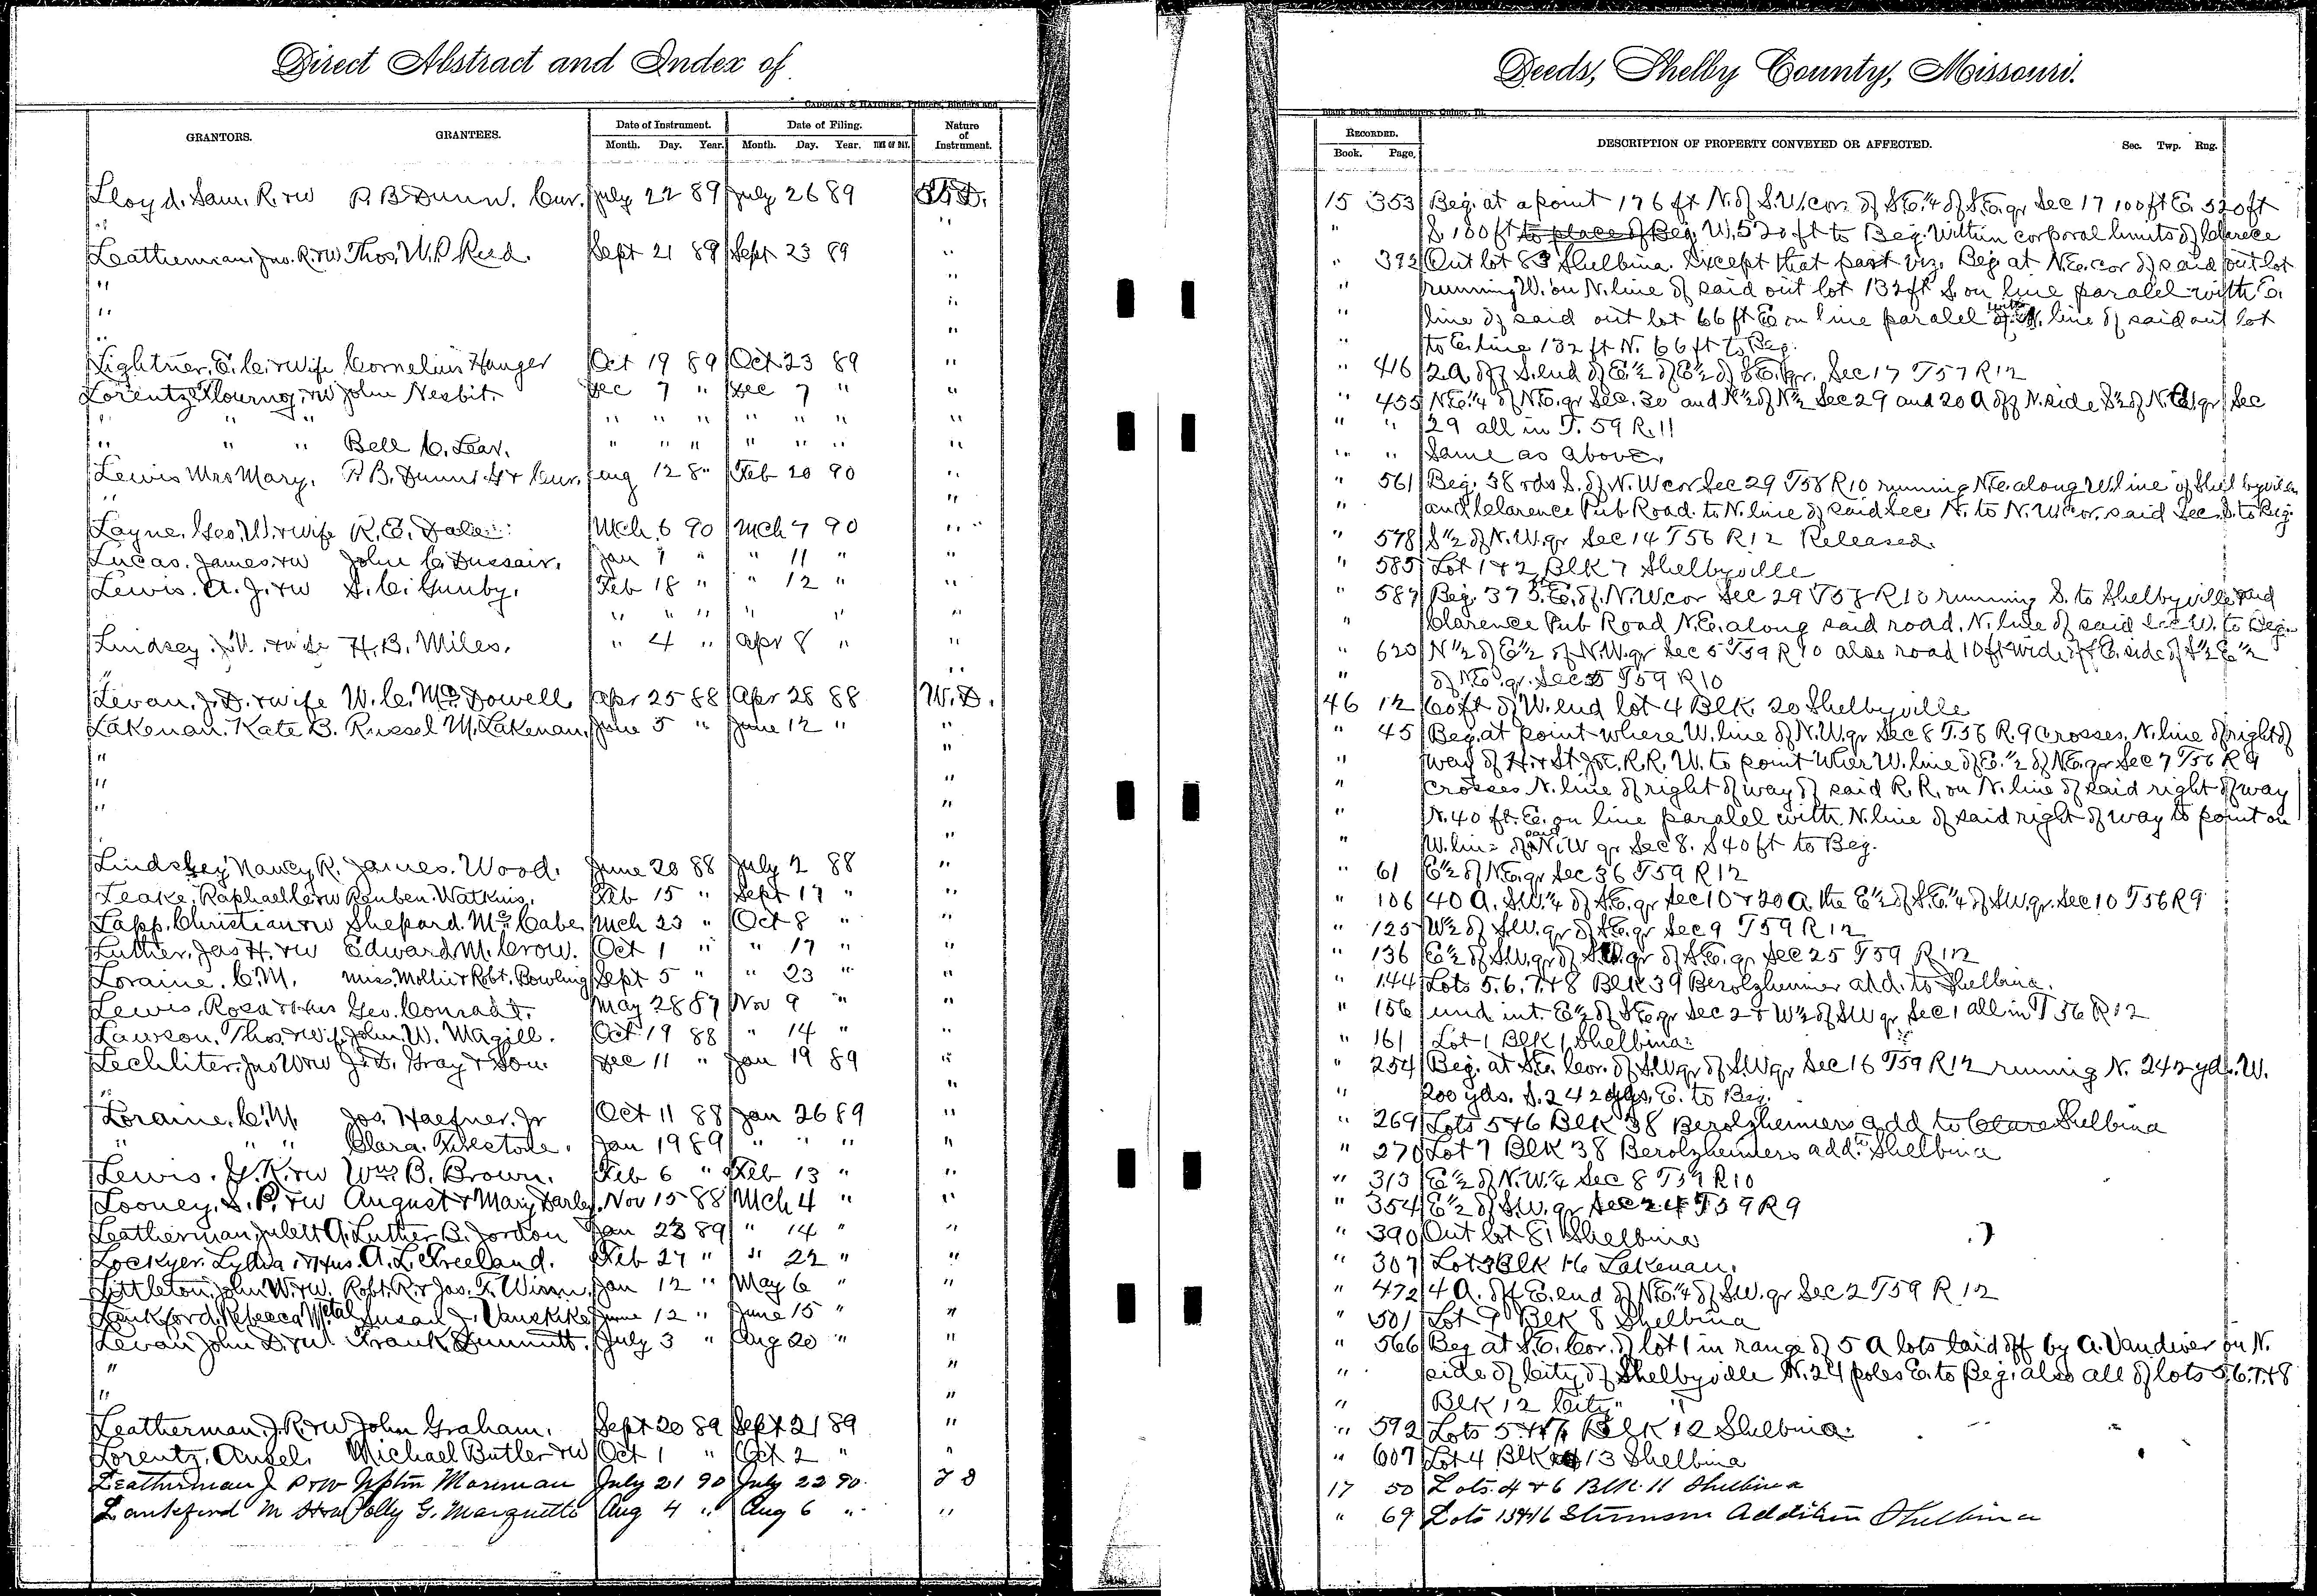 Direct Abstract and Index of
Deeds, Shelby County, Missouri.
CADOGAN & HATCHER, Printers, Binders and
Blank Book Manufacturers, Quincy, Ill.
GRANTORS. GRANTEES. Date of Instrument. Date of Filing. Nature of Instrument.
Month. Day. Year. Month. Day. Year. TIME OF DAY.
RECORDED. DESCRIPTION OF PROPERTY CONVEYED OR AFFECTED. Sec. Twp. Rng.
Book. Page.
Lloyd. Sam. R. & W P. B. Dunn. Cur. July 22 89 July 26 89 15 353 Beg. at a point 176 ft N. of S.W. cor. of S.E. 1/4 of S.E. qr Sec 17 100 ft E. 520 ft
" " " S. 100 ft to place of Beg. W. 520 ft to Beg. Within corporal limits of Clarece
Leatherman. Jno. R. & W Thos. W. P. Reed. Sept 21 89 Sept 23 89 " " 392 Out lot 83 Shelbina. Except that part viz. Beg. at N.E. cor of said out lot
" " " running W. on N. line of said out lot 132 ft S. on line paralel with E.
" " " line of said out lot 66 ft E on line paralel with N. line of said out lot
" " " to E. line 132 ft N. 66 ft to Beg.
Lightner, E. C. & wife Cornelius Hanger Oct 19 89 Oct 23 89 " " 416 2 A. off S. end of E 1/2 of E 1/2 of S.E. qr. Sec 17 T57 R12
Lorentz Flournoy. & W John Nesbit. Dec 7 " Dec 7 " " " 455 N.E. 1/4 of N.E. qr Sec. 30 and N 1/2 of N 1/2 Sec 29 and 20 A off N. side S 1/2 of N.E. qr Sec
" " " " " " " " " " " 29 all in T. 59 R. 11
" " " Bell C. Lear. " " " " " " " " " Same as above.
Lewis Mrs Mary. P. B. Dunn Gr & Cur. Aug 12 8" Feb 20 90 " " 561 Beg. 38 rds S. of N. W cor Sec 29 T58 R10 running N.E. along W. line of Shelbyville
" " " and Clarence Pub Road to N. line of said Sec N. to N. W. cor. said Sec. S. to Beg.
Layne. Geo. W. & wife R. E. Dale Mch 6 90 Mch 7 90 " " 578 S 1/2 of N. W. qr Sec 14 T56 R12 Released.
Lucas. James. & W John C. Dussair. Jan 7 " " 11 " " " 585 Lot 1 & 2 Blk 7 Shelbyville
Lewis. A. J. & W S. C. Gunby. Feb 18 " " 12 " " " 587 Beg. 37 S. E. of N. W. cor Sec 29 T58 R10 running S. to Shelbyville and
" " " " " " " Clarence Pub Road N.E. along said road. N. line of said Sec W. to Beg.
Lindsey. J. W. & wife H. B. Miles. " 4 " Apr 8 " " " 620 N 1/2 of E 1/2 of N.W. qr Sec 5 T59 R 10 also road 10 ft wide off E. side of S 1/2 E 1/2
" " " of N.E. qr. Sec 5 T59 R10
Levan, J. D. & wife W. C. McDowell Apr 25 88 Apr 28 88 W. D. 46 12 60 ft of W. end lot 4 Blk. 20 Shelbyville
Lakenan. Kate B. Russel M. Lakenan. June 5 " June 12 " " " 45 Beg. at point where W. line of N.W. qr Sec 8 T.56 R.9 Crosses. N. line of right of
" " " way of H. & St Joe. R.R. W. to point wher W. line of E. 1/2 of N.E. qr Sec 7 T56 R 9
" " " Crosses N. line of right of way of said R.R. on N. line of said right of way
" " " N. 40 ft. E. on line paralel with. N. line of said right of way to point on
" " W. line of said N. W qr Sec 8. S 40 ft to Beg.
Lindsley Nancy R. James. Wood. June 20 88 July 2 88 " " 61 E 1/2 of N.E. qr Sec 36 T59 R12
Leake, Raphael C. & W Reuben. Watkins. Feb 15 " Sept 17 " " " 106 40 A. S.W. 1/4 of S.E. qr Sec 10 & 20 A. the E 1/2 of S.E. 1/4 of S.W. qr. Sec 10 T56 R9
Lapp. Christian & W Shepard. McCabe Mch 23 " Oct 8 " " " 125 W 1/2 of S.W. qr of S.E. qr Sec 9 T59 R12
Luther. Jas H. & W Edward M. Crow. Oct 1 " " 17 " " " 136 E 1/2 of S.W. qr of S.W. qr of S.E. qr Sec 25 T59 R 12
Loraine. C. M. Miss. Mollie & Robt. Bowling Sept 5 " " 23 " " " 144 Lots 5. 6. 7. & 8 Blk 39 Berolzheimer add. to Shelbina.
Lewis, Rosa & Hus Geo. Conradt. May 28 87 Nov 9 " " " 156 und. int. E 1/2 of S.E. qr Sec 2 & W 1/2 of S.W qr Sec 1 all in T 56 R 12
Lawson. Thos. & Wif. John. W. Magill. Oct 19 88 " 14 " " " 161 Lot 1 Blk 1 Shelbina.
Lechliter. Jno W & W J. D. Gray & Son. Dec 11 " Jan 19 89 " " 254 Beg. at S.E. Cor. of S.W qr of S.W qr Sec 16 T59 R12 runnig N. 242 yds. W.
" " " 200 yds. S. 242 yds. E. to Beg.
Loraine. C. M. Jos. Haefner. Jr Oct 11 88 Jan 26 89 " " 269 Lots 5 & 6 Blk 38 Berolzheimers add to Clare Shelbina
" " " Clara. Firestone. Jan 19 89 " " " " " 270 Lot 7 Blk 38 Berolzheimers add. to Shelbina
Lewis. J. K. & W Wm. B. Brown. Feb 6 " Feb 13 " " " 313 E 1/2 of N. W. 1/4 Sec 8 T59 R10
Looney. S. P. & W August & Mary Darley. Nov 15 88 Mch 4 " " " 354 E 1/2 of S. W. qr Sec 24 T59 R9
Leatherman, Julett A. Luther B. Jordon Jan 23 89 " 14 " " " 390 Out lot 81 Shelbina
Lockyer. Lydia & Hus. A. L. Freeland. Feb 27 " " 22 " " " 307 Lot 3 Blk 16 Lakenan.
Littleton, John. W. & W. Robt. R. & Jas. T. Winn. Jan 12 " May 6 " " " 472 4 A. off E. end of N.E. 1/4 of S.W. qr Sec 2 T59 R 12
Lankford. Rebecca M. etal Susan J. Vanskike June 12 " June 15 " " " 501 Lot 9 Blk 8 Shelbina
Levan John D. & W. Frank Dimmitt. July 3 " Aug 20 " " " 566 Beg at S. E. Cor. of lot 1 in range of 5 A lots laid off by A. Vandiver on N.
" " " side of City of Shelbyville N. 24 poles E. to Beg. also all of lots 5. 6. 7. & 8
" " " Blk 12 City "
Leatherman, J. R. & W John Graham. Sept 20 89 Sept 21 89 " " 592 Lots 5 & 6 Blk 12 Shelbina.
Lorentz. Ansel. Michael Butler & W Oct 1 " Oct 2 " " " 607 Lot 4 Blk 13 Shelbina
Leatherman J R & W Upton Moreman July 21 90 July 22 90. 17 50 Lots. 4 & 6 Blk. 11 Shelbina
Lankford M Polly G. Marquette Aug 4 " Aug 6 " " " 69 Lots 15 & 16 Stimson Addition Shelbina